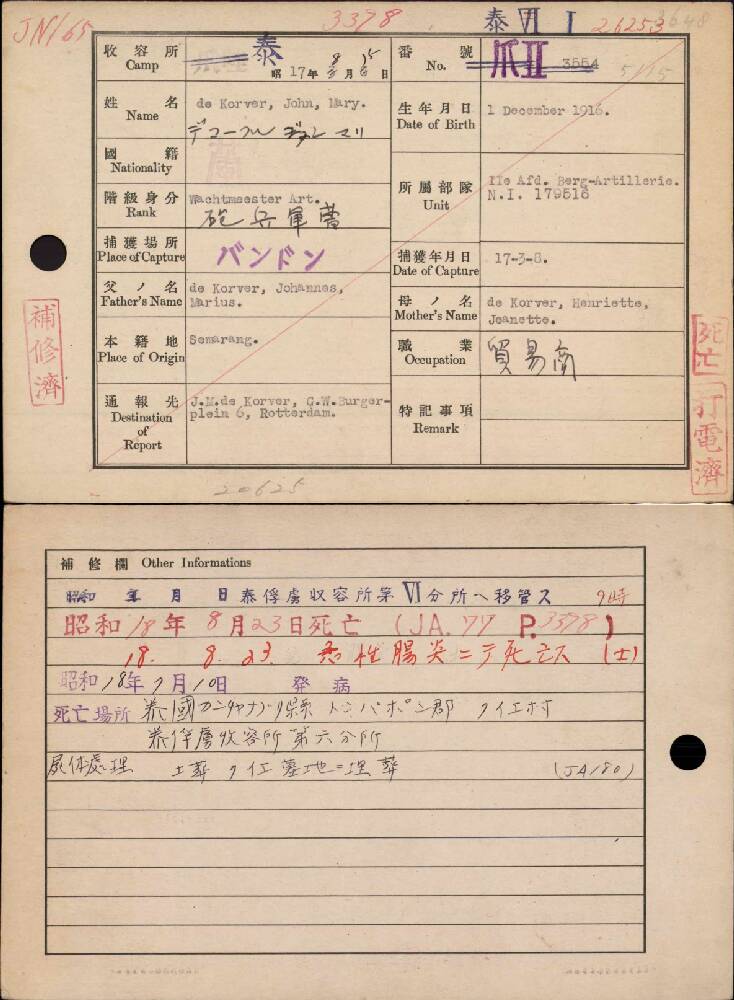 JN165
3378
泰 VI I
26253
収容所 Camp
泰
昭 17年 8月 15日
番號 No.
爪II 3554
姓名 Name
de Korver, John, Mary.
デコーフル ヂョン マリ
生年月日 Date of Birth
1 December 1916.
國籍 Nationality
階級身分 Rank
Wachtmeester Art.
砲兵軍曹
所属部隊 Unit
IIe Afd. Berg-Artillerie.
N.I. 179518
捕獲場所 Place of Capture
バンドン
捕獲年月日 Date of Capture
17-3-8.
父ノ名 Father's Name
de Korver, Johannes,
Marius.
母ノ名 Mother's Name
de Korver, Henriette,
Jeanette.
本籍地 Place of Origin
Semarang.
職業 Occupation
貿易商
通報先 Destination of Report
J.M.de Korver, G.W.Burger-
plein 6, Rotterdam.
特記事項 Remark
補修濟
死亡
打電濟
20625
補修欄 Other Informations
昭和 年 月 日泰俘虜収容所第VI分所ヘ移管ス
昭和18年8月23日死亡 (JA.77 P.3378)
18. 8. 23. 悪性腸炎ニテ死亡ス (士)
昭和18年7月10日 発病
死亡場所 泰國カンチャナブリ縣 トンパポン郡 クイエ村
泰俘虜収容所第六分所
屍体処理 土葬 クイエ墓地ニ埋葬 (JA180)